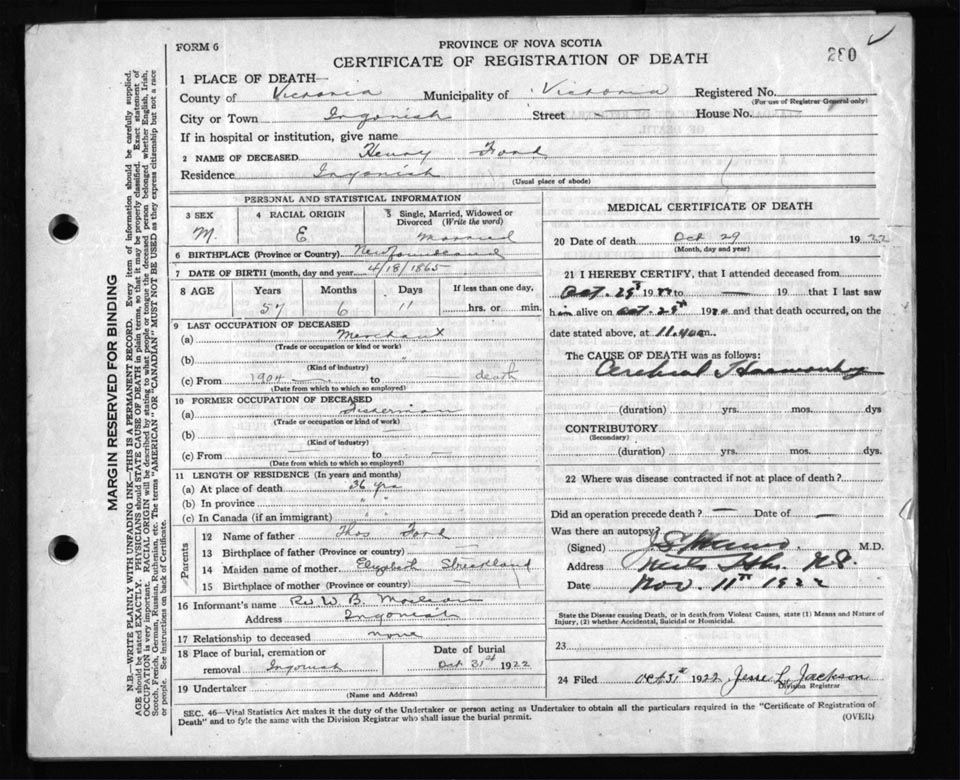 FORM 6
PROVINCE OF NOVA SCOTIA
CERTIFICATE OF REGISTRATION OF DEATH
280
1 PLACE OF DEATH—
County of Victoria Municipality of Victoria Registered No.
(For use of Registrar General only)
City or Town Ingonish Street — House No. —
If in hospital or institution, give name
2 NAME OF DECEASED Henry
Residence Ingonish
(Usual place of abode)
PERSONAL AND STATISTICAL INFORMATION
3 SEX 4 RACIAL ORIGIN 5 Single, Married, Widowed or
Divorced (Write the word)
M. E Married
6 BIRTHPLACE (Province or Country) Newfoundland
7 DATE OF BIRTH (month, day and year) 4/18/1865
8 AGE Years Months Days If less than one day,
57 6 11 hrs. or min.
9 LAST OCCUPATION OF DECEASED
(a) Merchant
(Trade or occupation or kind or work)
(b) "
(Kind of industry)
(c) From 1904 — to death
(Date from which to which so employed)
10 FORMER OCCUPATION OF DECEASED
(a) Fisherman
(Trade or occupation or kind of work)
(b)
(Kind of industry)
(c) From — to —
(Date from which to which so employed)
11 LENGTH OF RESIDENCE (In years and months)
(a) At place of death 36 yrs
(b) In province " "
(c) In Canada (if an immigrant) " "
Parents
12 Name of father Thos
13 Birthplace of father (Province or country) —
14 Maiden name of mother Elizabeth Strickland
15 Birthplace of mother (Province or country) —
16 Informant's name Rev W. B.
Address Ingonish
17 Relationship to deceased none
18 Place of burial, cremation or Date of burial
removal Ingonish Oct 31st 1922
19 Undertaker
(Name and Address)
MEDICAL CERTIFICATE OF DEATH
20 Date of death Oct 29 1922
(Month, day and year)
21 I HEREBY CERTIFY, that I attended deceased from
Oct. 19 to — 19 that I last saw
him alive on Oct. 19 and that death occurred, on the
date stated above, at 11.40 m.
The CAUSE OF DEATH was as follows:
Cerebral
(duration) yrs. mos. dys
CONTRIBUTORY
(Secondary)
(duration) yrs. mos. dys
22 Where was disease contracted if not at place of death?
Did an operation precede death? — Date of —
Was there an autopsy?
(Signed) M.D.
Address N.S.
Date Nov. 11th 1922
State the Disease causing Death, or in death from Violent Causes, state (1) Means and Nature of
Injury, (2) whether Accidental, Suicidal or Homicidal.
23
24 Filed Oct 31st 1922 Jesse L. Jackson
Division Registrar
SEC. 46—Vital Statistics Act makes it the duty of the Undertaker or person acting as Undertaker to obtain all the particulars required in the "Certificate of Registration of
Death" and to fyle the same with the Division Registrar who shall issue the burial permit.
(OVER)
MARGIN RESERVED FOR BINDING
N.B.—WRITE PLAINLY WITH UNFADING INK—THIS IS A PERMANENT RECORD. Every item of information should be carefully supplied.
AGE should be stated EXACTLY. PHYSICIANS should STATE CAUSE OF DEATH in plain terms, so that it may be properly classified. Exact statement of
OCCUPATION is very important. RACIAL ORIGIN will be described by stating to what people or tongue the deceased person belonged whether English, Irish,
Scotch, French, German, Russian, Ruthenian, etc. The terms "AMERICAN" OR "CANADIAN" MUST NOT BE USED as they express citizenship but not a race
or people. See instructions on back of Certificate.